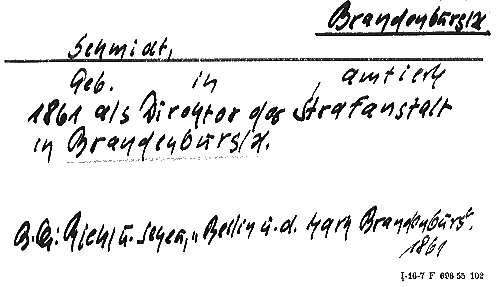 Brandenburg/H.
Schmidt,
Geb. in , amtierte
1861 als Direktor der Strafanstalt
in Brandenburg/H.
Riehl u. Scheu, "Berlin u. d. Mark Brandenburg"
1861
I-16-7 F 698 55 102